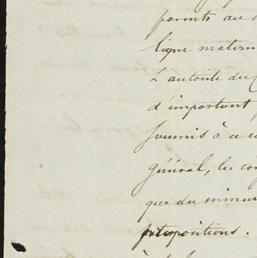 parents au
ligne matern
L'autorité du
d'important
soumis à ce
général, les co
que du mineu
propositions.